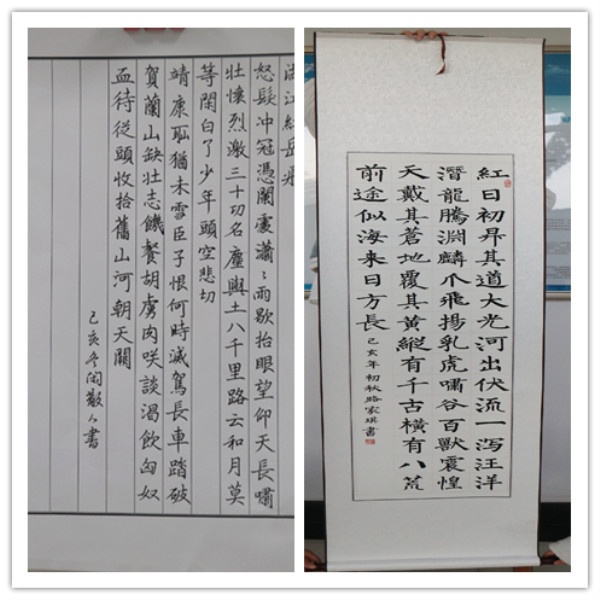 滿江紅岳飛
怒髮冲冠憑闌處瀟〻雨歇抬眼望仰天長嘯
壯懷烈激三十功名塵與土八千里路云和月莫
等閑白了少年頭空悲切
靖康恥猶未雪臣子恨何時滅駕長車踏破
賀蘭山缺壯志饑餐胡虜肉咲談渴飲匈奴
血待從頭收拾舊山河朝天闕
己亥冬閑散人書
紅日初昇其道大光河出伏流一瀉汪洋
潛龍騰淵麟爪飛揚乳虎嘯谷百獸震惶
天戴其蒼地覆其黃縱有千古橫有八荒
前途似海来日方長
己亥年初秋路家琪書